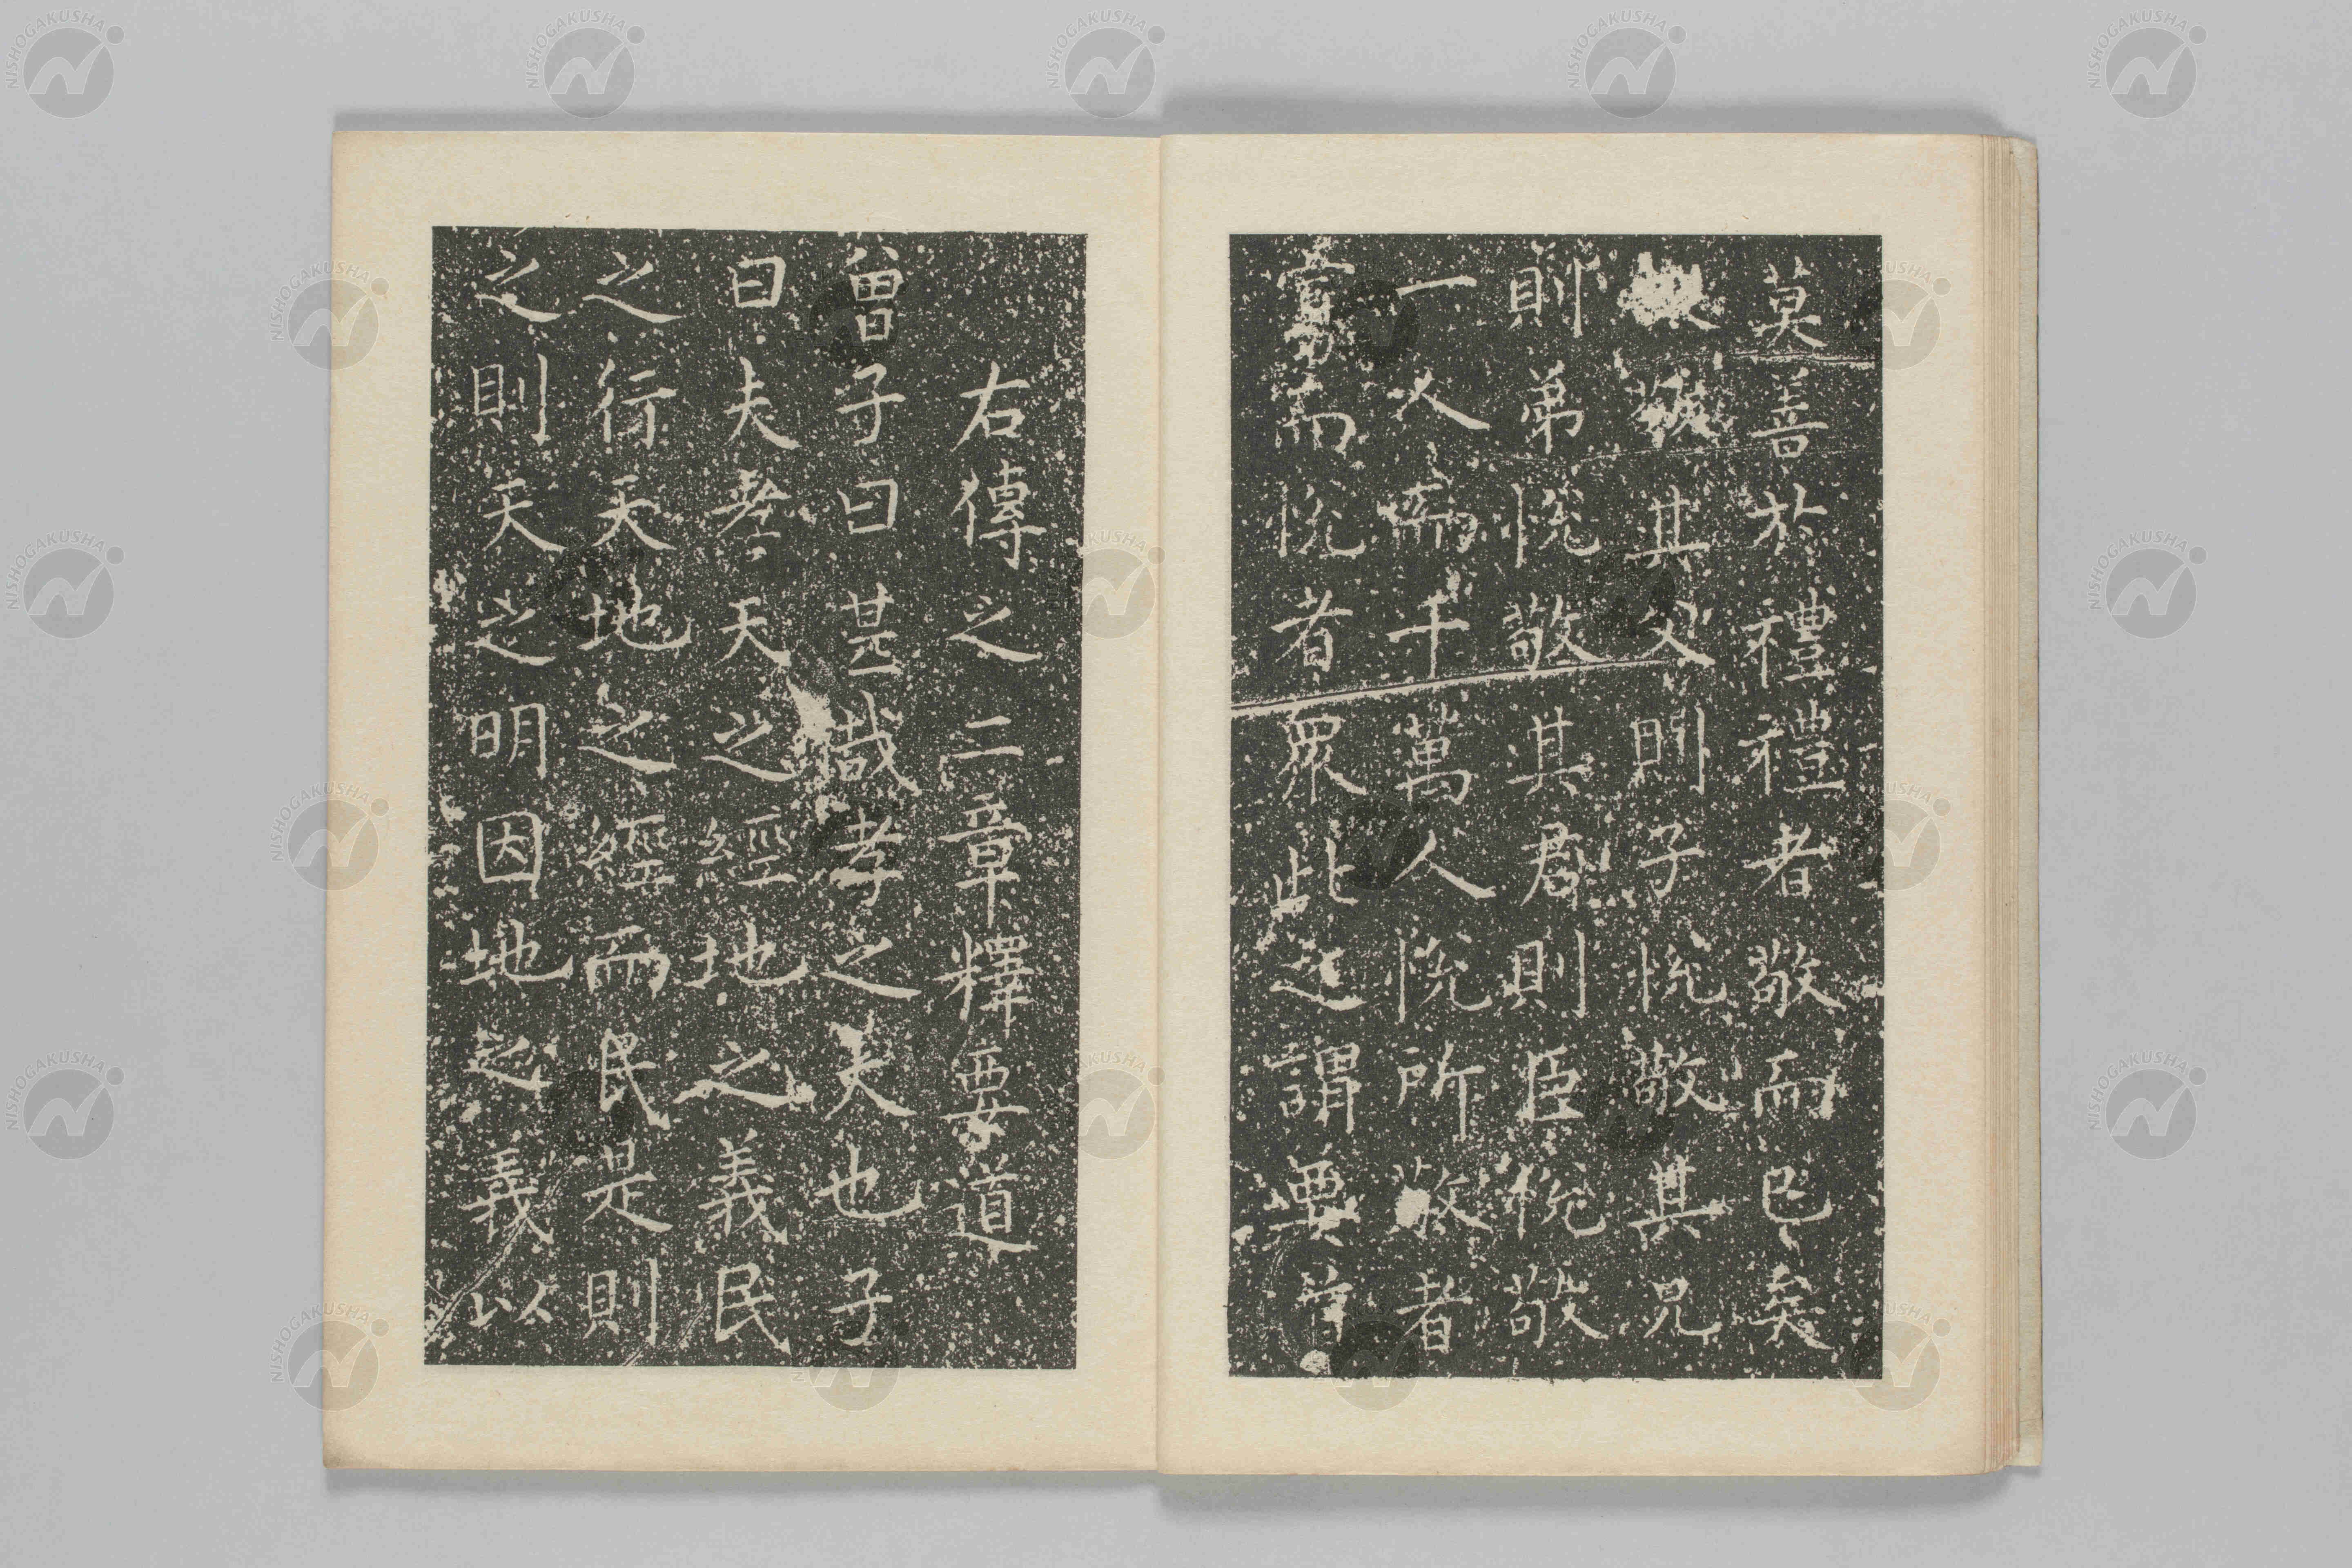 莫善於禮禮者敬而已矣
敬其父則子悅敬其兄
則弟悅敬其君則臣悅敬
一人而千萬人悅所敬者
寡而悅者眾此之謂要
右傳之二章釋要道
曾子曰甚哉孝之也子
曰夫孝天之經地之義民
之行天地之經而民是則
之則天之明因地之義以
NISHOGAKUSHA